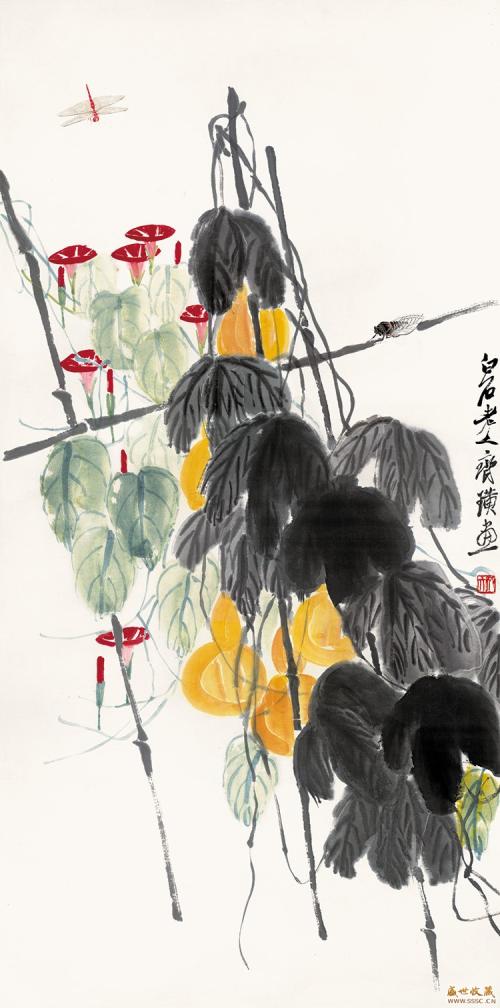 白石老人齐璜画
盛世收藏
WWW.SSSC.CN